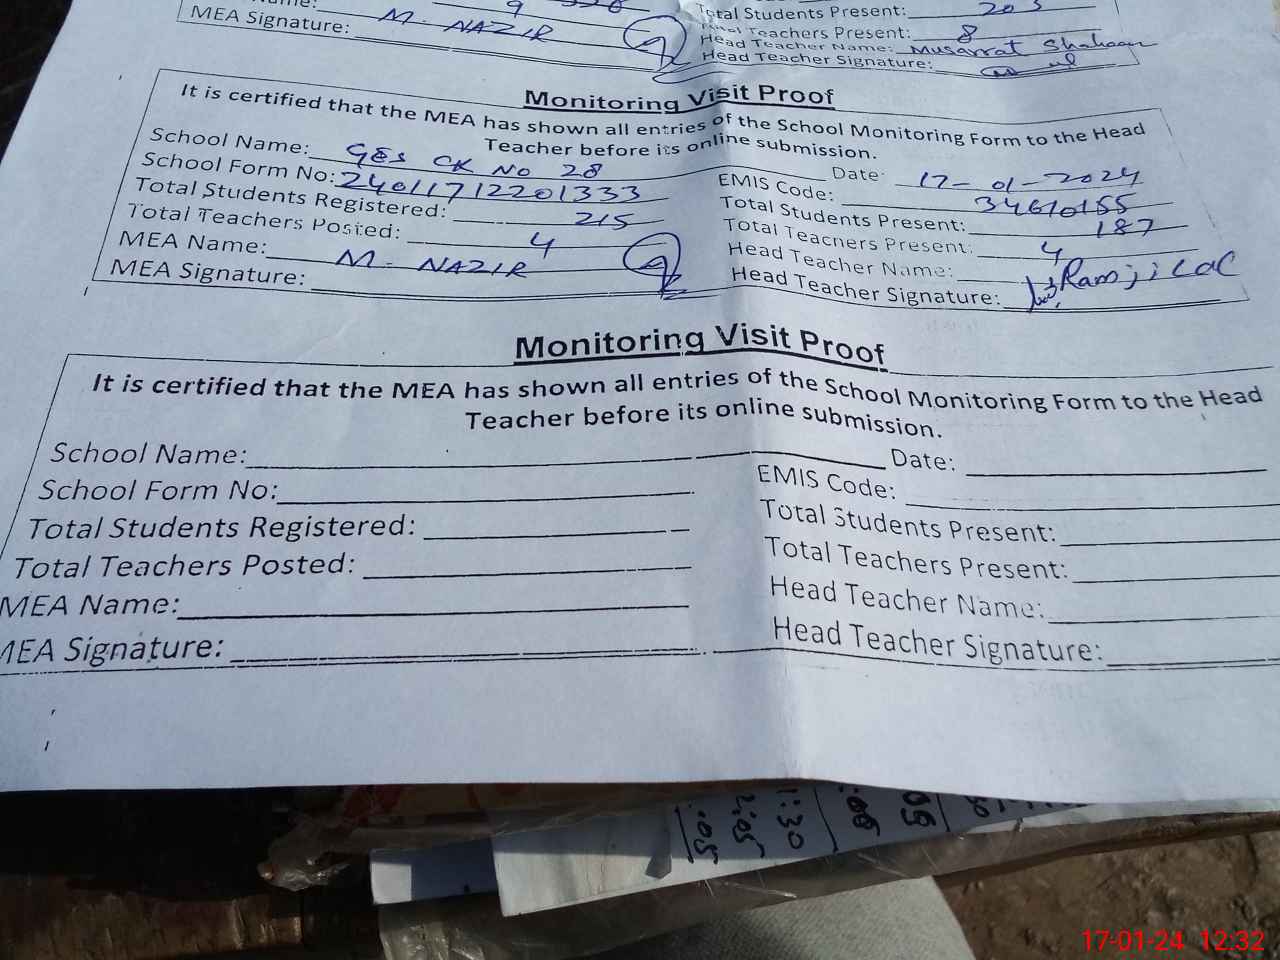 MEA Signature: M. NAZIR
Total Students Present: 203
Teachers Present: 8
Head Teacher Name: Musarrat Shaheen
Head Teacher Signature:
Monitoring Visit Proof
It is certified that the MEA has shown all entries of the School Monitoring Form to the Head
Teacher before its online submission.
School Name: GES CK No 28
Date: 17-01-2024
School Form No: 240117122201333
EMIS Code: 34610155
Total Students Registered: 215
Total Students Present: 187
Total Teachers Posted: 4
Total Teachers Present: 4
MEA Name: M. NAZIR
Head Teacher Name: Ramji Lal
MEA Signature:
Head Teacher Signature:
Monitoring Visit Proof
It is certified that the MEA has shown all entries of the School Monitoring Form to the Head
Teacher before its online submission.
School Name:
Date:
School Form No:
EMIS Code:
Total Students Registered:
Total Students Present:
Total Teachers Posted:
Total Teachers Present:
MEA Name:
Head Teacher Name:
MEA Signature:
Head Teacher Signature:
1:30
2:05
.05
17-01-24 12:32